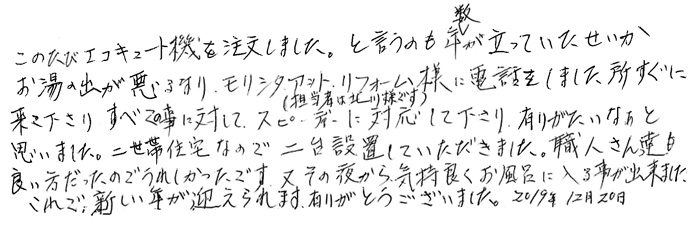 このたびエコキュート機を注文しました。と言うのも年数が立っていたせいか
お湯の出が悪るなり、モリシタ.アット.リフォーム様に電話をしました所すぐに
来て下さり すべての事に対して、スピーディーに対応して下さり、有りがたいなぁと
(担当者は北川様です)
思いました。二世帯住宅なので 二台設置していただきました。職人さん達も
良い方だったのでうれしかったです 又その夜から、気持良くお風呂に入る事が出来ました
これで、新しい年が迎えられます。有りがとうございました。2019年12月20日